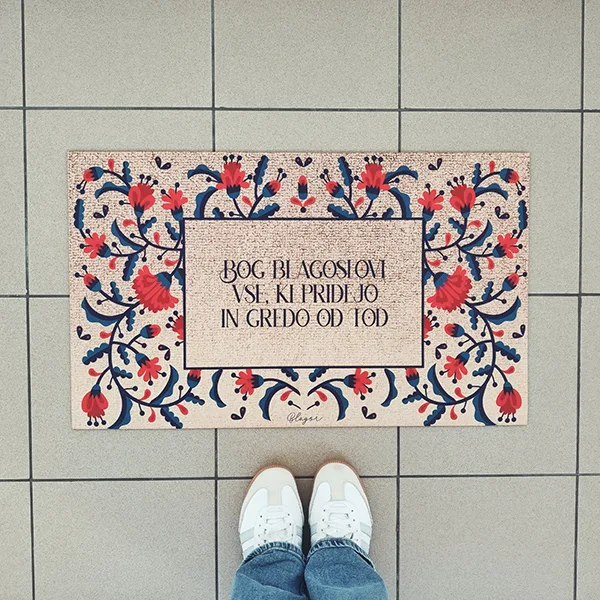 BOG BLAGOSLOVI
VSE, KI PRIDEJO
IN GREDO OD TOD
Blagor